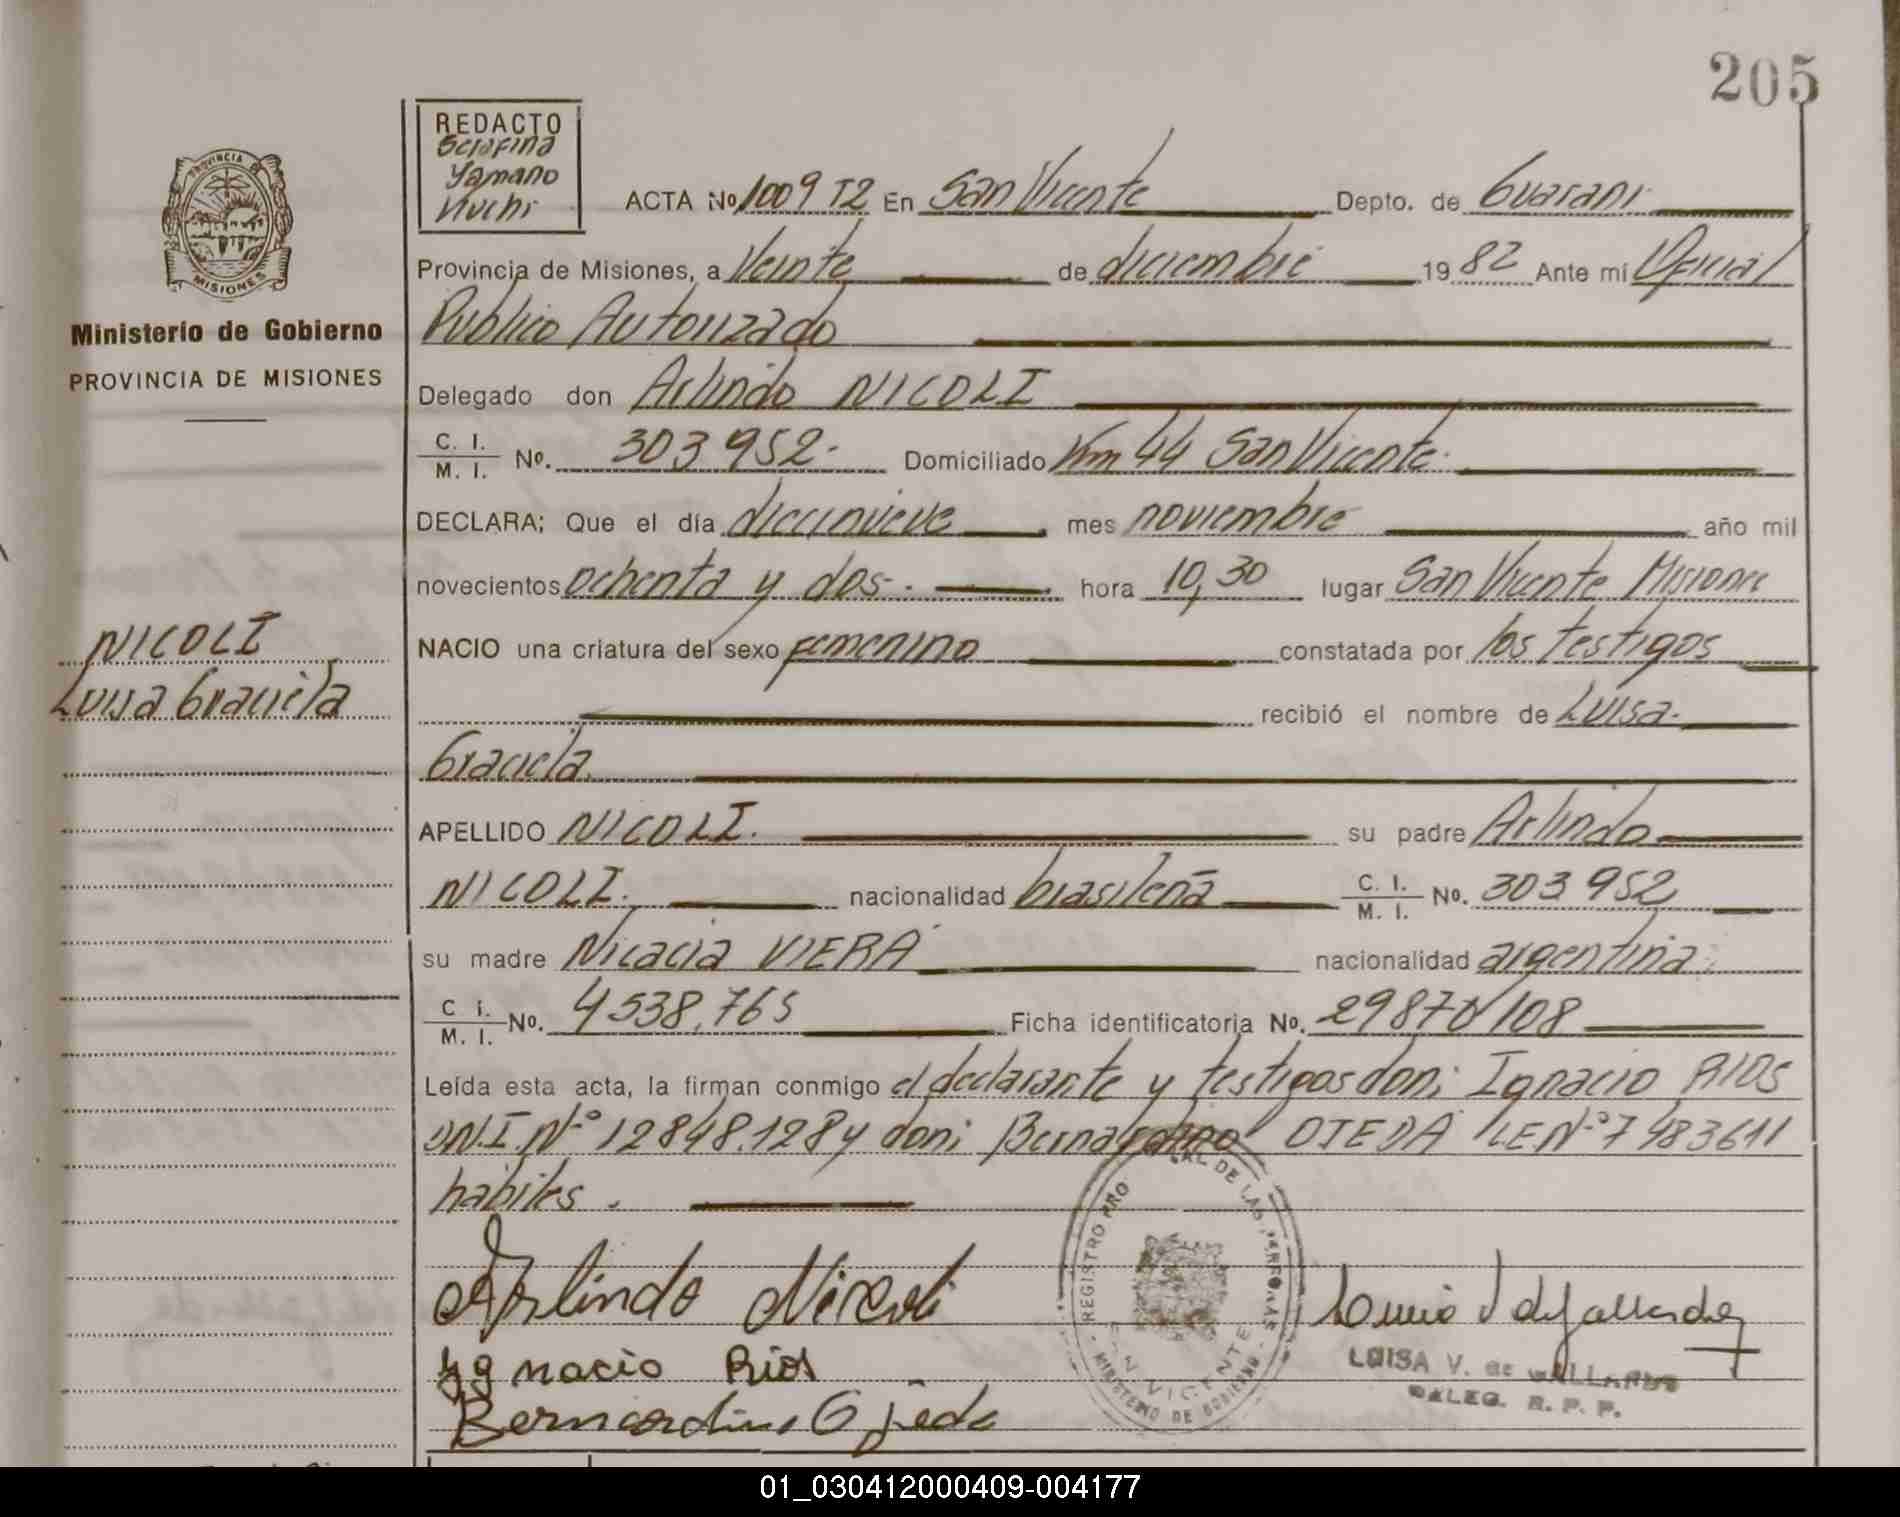 205
REDACTO
Serafina
Yamano
Kuchi
ACTA No 1009 T2 En San Vicente Depto. de Guarani
Provincia de Misiones, a Veinte de diciembre 19 82 Ante mí Oficial
Publico Autorizado
Delegado don Arlindo NICOLI
C. I. / M. I. No. 303 952- Domiciliado Km 44 San Vicente-
DECLARA; Que el día diecinueve mes noviembre año mil
novecientos ochenta y dos- hora 10,30 lugar San Vicente Misiones
NACIO una criatura del sexo femenino constatada por los testigos
recibió el nombre de Luisa-
Graciela
APELLIDO NICOLI. su padre Arlindo
NICOLI. nacionalidad brasileña C. I. / M. I. No. 303 952
su madre Nicacia VIERA nacionalidad argentina
C I. / M. I. No. 4538.765 Ficha identificatoria No. 29870/108
Leída esta acta, la firman conmigo el declarante y testigos don: Ignacio RIOS
D.N.I. Nº 12848.128 y don: Bernardino OJEDA L.E.Nº 7483611
habiles.
Arlindo Nicoli
Ignacio Rios
Bernardino Ojeda
REGISTRO PRO AL DE LAS PERSONAS
SAN VICENTE
MINISTERIO DE GOBIERNO
LUISA V. de GALLARDO
DALEG. R. P. P.
PROVINCIA
MISIONES
Ministerio de Gobierno
PROVINCIA DE MISIONES
NICOLI
Luisa Graciela
01_030412000409-004177